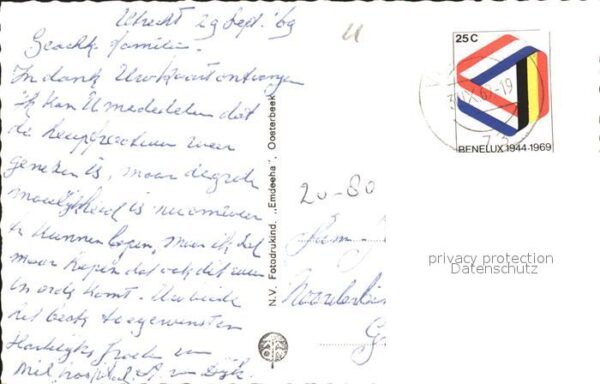 Utrecht 29 Sept. '69
Geachte familie.
In dank Uw kaart ontvangen
Ik kan U mededelen dat
de heupfractuur weer
genezen is, maar de grote
moeilijkheid is nu om weer
te kunnen lopen, maar ik zal
maar hopen dat ook dit weer
in orde komt. Uw beide
het beste toegewenst
Hartelijk groeten van
Mil. hospitaal v. Dijk.
25 C
BENELUX 1944-1969
N.V. Fotodrukind. „Emdeeha", Oosterbeek
20-80
Fam.
privacy protection
Datenschutz